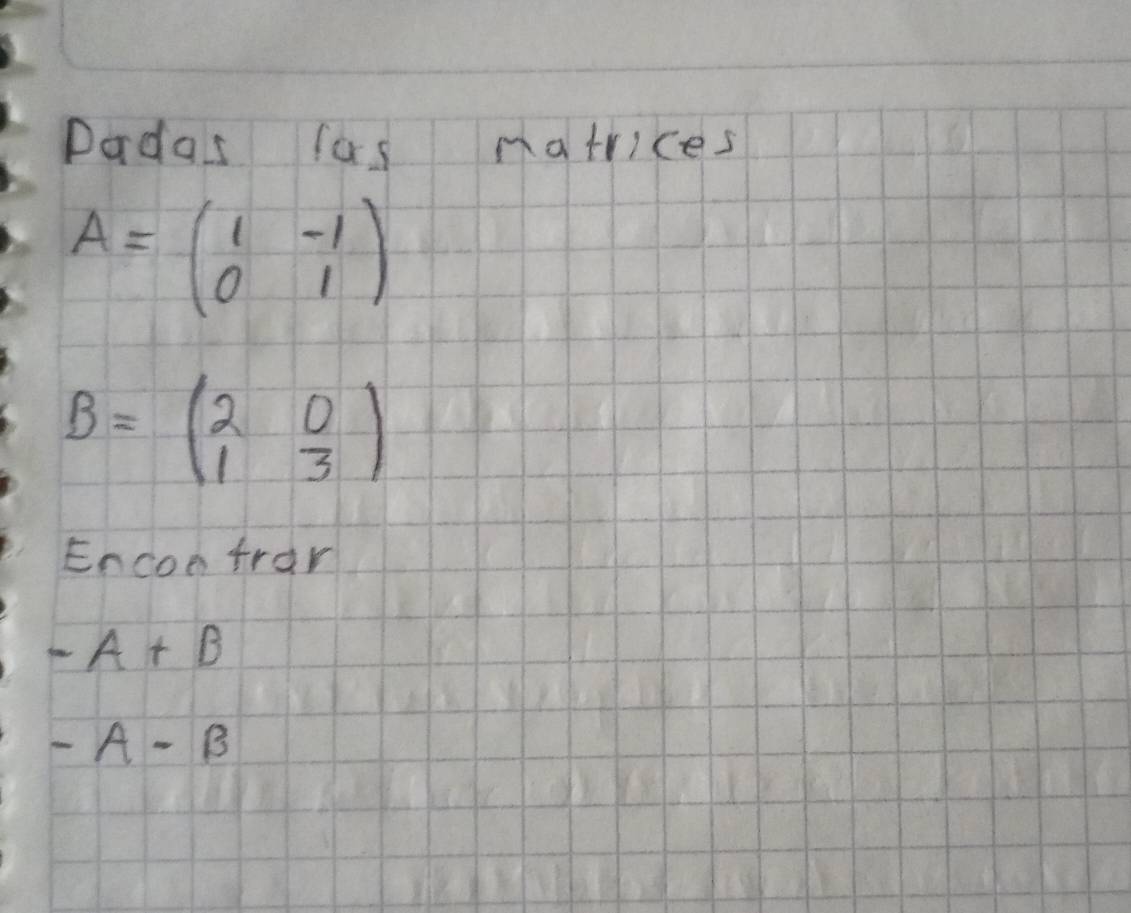 Dadas las matrices
A = ( 1 -1
0 1 )
B = ( 2 0
1 3 )
Encontrar
- A + B
- A - B